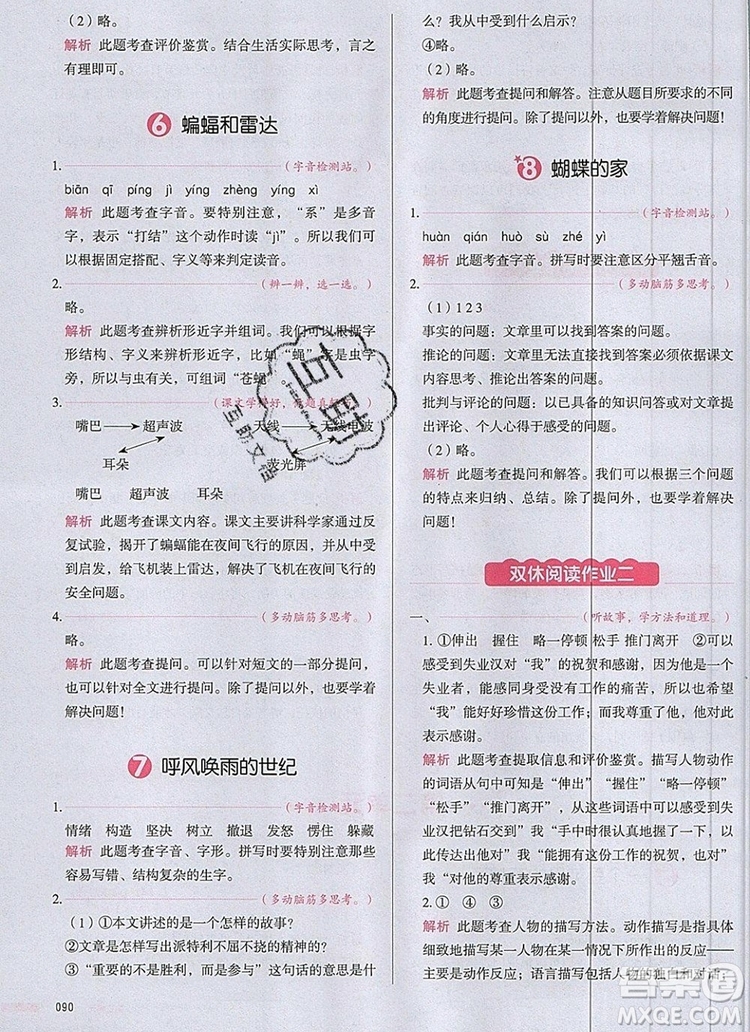 （2）略。
解析 此题考查评价鉴赏。结合生活实际思考，言之
有理即可。
6 蝙蝠和雷达
1.
（字音检测站。）
biān qī píng jì yíng zhèng yíng xì
解析 此题考查字音。要特别注意，“系”是多音
字，表示“打结”这个动作时读“jì”。所以，我们可
以根据固定搭配、字义等来判定读音。
2.
（辨一辨，选一选。）
略。
解析 此题考查辨析形近字并组词。我们可以根据字
形结构、字义来辨析形近字，比如“蝇”字是虫字
旁，所以与虫有关，可组词“苍蝇
3.
嘴巴 超声波 天线 无线电波
耳朵 荧光屏
嘴巴 超声波 耳朵
解析 此题考查课文内容。课文主要讲科学家通过反
复试验，揭开了蝙蝠能在夜间飞行的原因，并从中受
到启发，给飞机装上雷达，解决了飞机在夜间飞行的
安全问题。
4.
（多动脑筋多思考。）
略。
解析 此题考查提问。可以针对短文的一部分提问，
也可以针对全文进行提问。除了提问以外，更要学着
回答问题！
7 呼风唤雨的世纪
1.
（字音检测站。）
情绪 构造 坚决 树立 撤退 发怒 愣住 躲藏
解析 此题考查字音、字形。拼写时要特别注意那些
容易写错、结构复杂的生字。
2.
（多动脑筋多思考。）
（1）①本文讲述的是一个怎样的故事？
②文章是怎样写出派特利不屈不挠的精神的？
③“重要的不是胜利，而是奋战”这句话的意思是什
090
么？我从中受到什么启示？
④略。
（2）略。
解析 此题考查提问和解答。注意从题目要求的不同
的角度进行提问。除了提问以外，更要学着回答问题！
8 蝴蝶的家
1.
（字音检测站。）
huàn qián huò sù zhé yì
解析 此题考查字音。拼写时要注意区分平翘舌音。
2.
（多动脑筋多思考。）
（1）1 2 3
事实的问题：文章里可以找到答案的问题。
推论的问题：文章里无法直接找到答案必须依据课文
内容进行思考、推论出答案的问题。
批判与评论的问题：以已具备的知识问答或对文本提
出评论、个人心得于感受的问题。
（2）略。
解析 此题考查提问和思考。我们可以依据三个问题
的特点来归纳、总结。除了提问以外，更要学着回答
问题！
双休阅读作业二
一、
（听故事，学方法和道理。）
1. ①伸出 握住 略一停顿 松手 推门离开 ②可以
感受到失业汉对“我”的祝贺和感谢。他同样是一个
失业者，能感受到没有工作的痛苦，所以他希望
“我”能好好珍惜这份工作；而我尊重了他，所以他
表示感谢。
解析 此题考查提取信息和评价鉴赏。描写人物动作
的词语从句中可知是“伸出”“握住”“略一停顿”
“松手”“推门离开”，从这些词语以及句中可以看出失
业汉把钻石交到“我”手中时可以感受到他的祝贺、
感谢。这传达出他对“我”能拥有这份工作的祝贺，也
“我”对他的尊重非常感谢。
2. ① ④ ③
解析 此题考查人物的描写方法。动作描写是指具体
细致地描写人物在某一情况下所作出的反应——即
一系列动作反应。语言描写包括人物的独白和对话。
互助
互助文档
答案圈
MXQE.COM